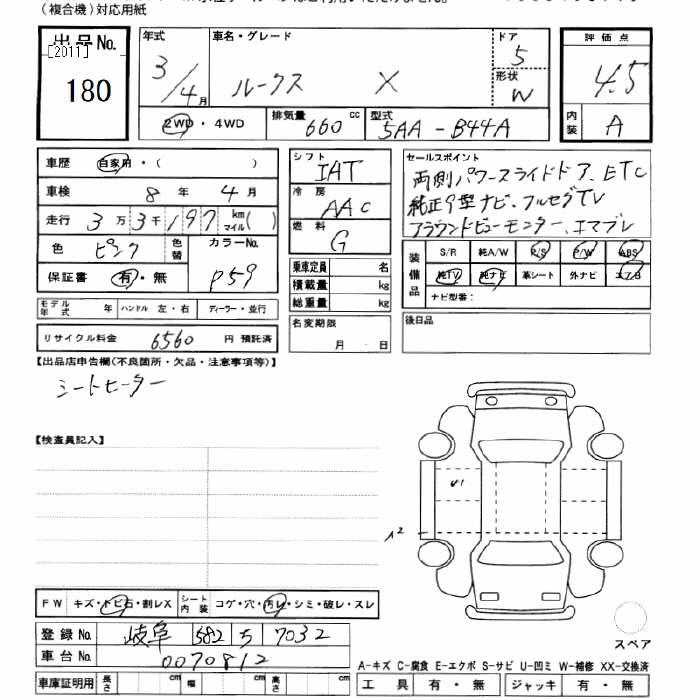 (複合機)対応用紙
出品No.
[2011]
180
年式 3/4月
車名・グレード ルークス X
ドア 5
形状 W
2WD・4WD
排気量 660 cc
型式 5AA-B44A
評価点 4.5
内装 A
車歴 自家用・( )
車検 8年 4月
走行 3万3千197 km マイル( )
色 ピンク 色替
カラーNo. P59
保証書 有・無
モデル年式 年 ハンドル 左・右 ディーラー・並行
リサイクル料金 6560 円 預託済
シフト IAT
冷房 AAC
燃料 G
乗車定員 名
積載量 kg
総重量 kg
名変期限 月 日
セールスポイント
両側パワースライドドア、ETC
純正9型ナビ、フルセグTV
アラウンドビューモニター、エマブレ
装備品 S/R 純A/W P/S P/W ABS
純TV 純ナビ 革シート 外ナビ エア/B
ナビ型番:
後日品
【出品店申告欄(不良箇所・欠品・注意事項等)】
シートヒーター
【検査員記入】
U1
A2
FW キズ・トビ石・割レX
シート内装 コゲ・穴・汚レ・シミ・破レ・スレ
登録No. 岐阜 582 ち 7032
車台No. 0070812
車庫証明用 長さ cm 幅 cm 高さ cm
スペア
A-キズ C-腐食 E-エクボ S-サビ U-凹ミ W-補修 XX-交換済
工具 有・無 ジャッキ 有・無